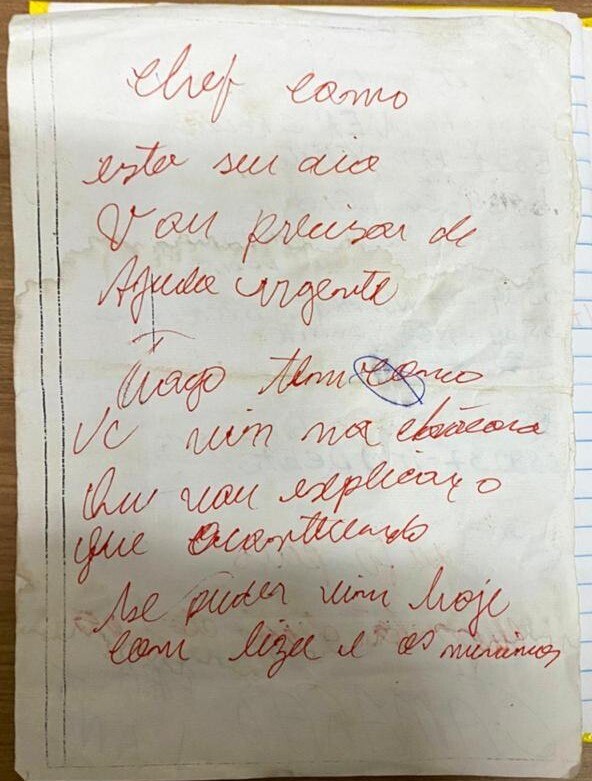 chef como
esta seu dia
Vou precisar de
Ajuda urgente
Tiago tem como
Vc vim na
que vou explicar o
que
se puder vim hoje
com liza e os meninos